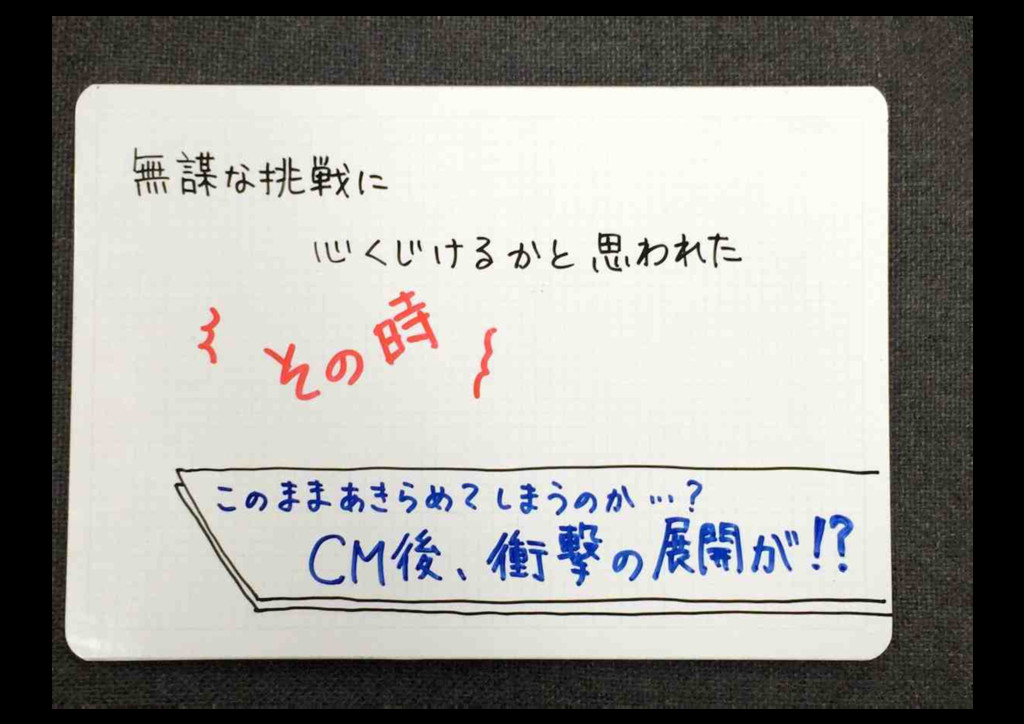 無謀な挑戦に
心くじけるかと思われた
その時
このままあきらめてしまうのか…?
CM後、衝撃の展開が!?